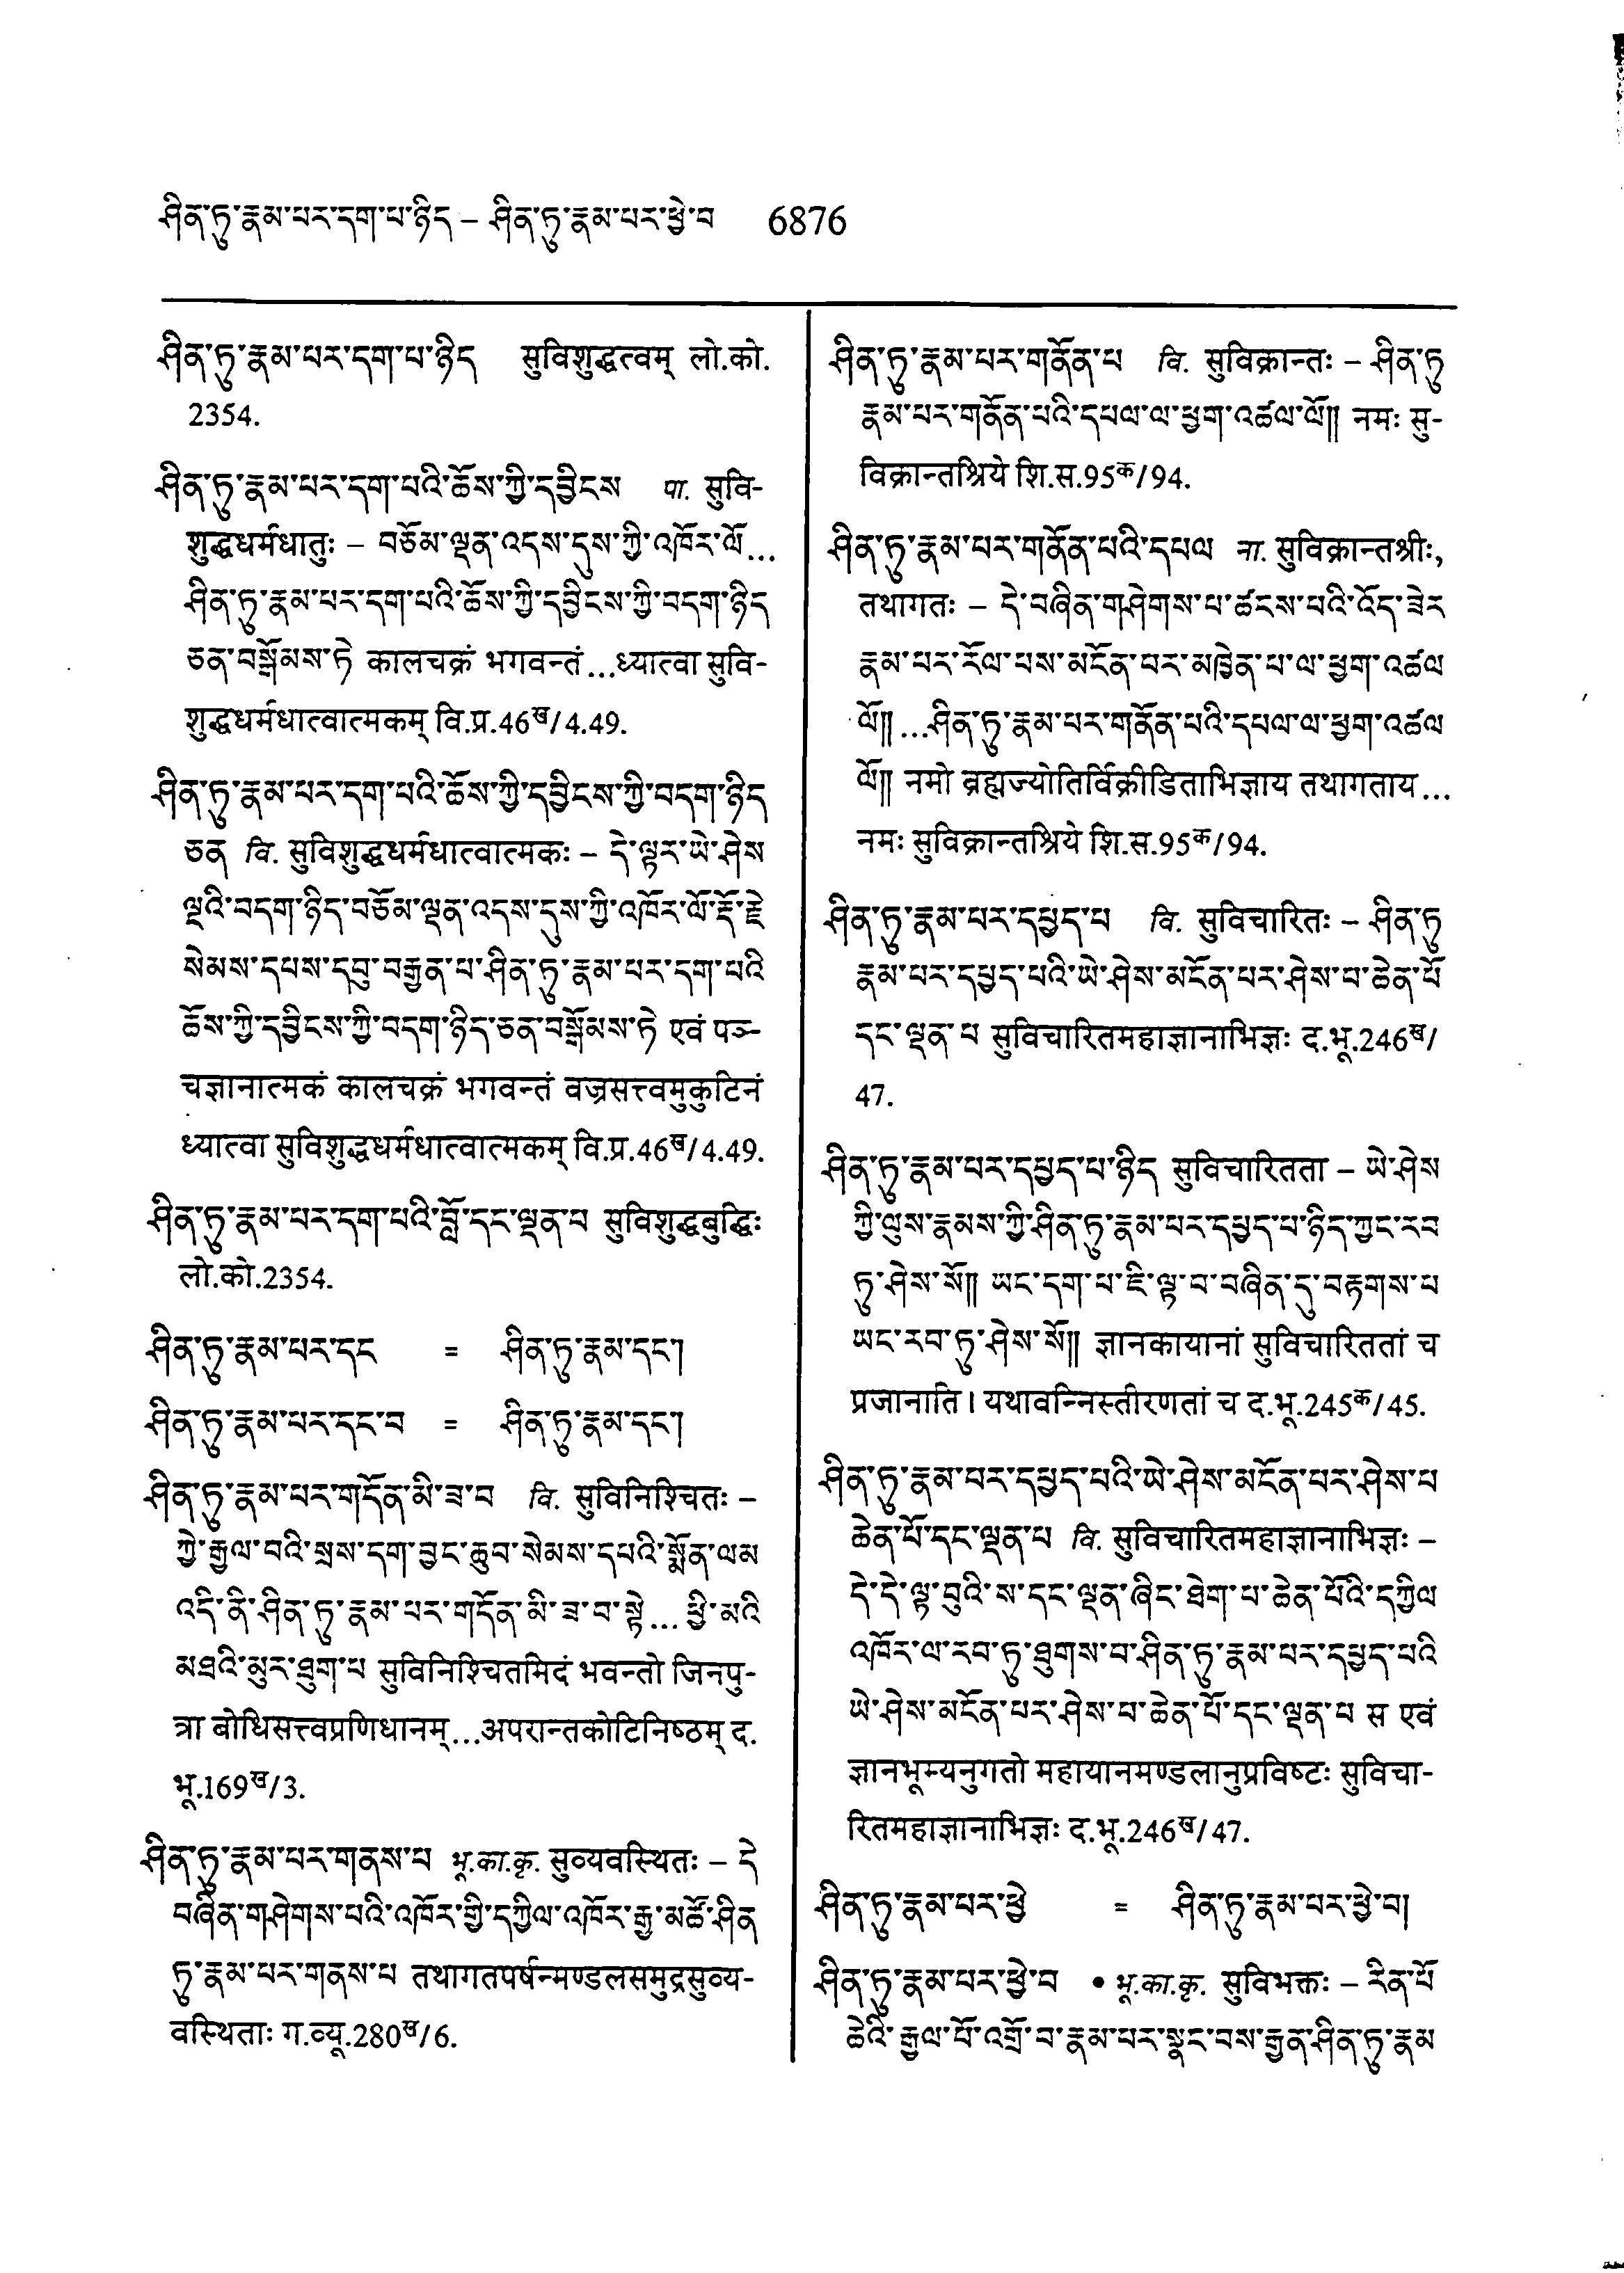 ཤིན་ཏུ་རྣམ་པར་དག་པ་ཉིད – ཤིན་ཏུ་རྣམ་པར་ཕྱེ་བ 6876
ཤིན་ཏུ་རྣམ་པར་དག་པ་ཉིད सुविशुद्धत्वम् लो.को.
2354.
ཤིན་ཏུ་རྣམ་པར་དག་པའི་ཆོས་ཀྱི་དབྱིངས पा. सुवि-
शुद्धधर्मधातुः – བཅོམ་ལྡན་འདས་དུས་ཀྱི་འཁོར་ལོ...
ཤིན་ཏུ་རྣམ་པར་དག་པའི་ཆོས་ཀྱི་དབྱིངས་ཀྱི་བདག་ཉིད
ཅན་བསྒོམས་ཏེ कालचक्रं भगवन्तं...ध्यात्वा सुवि-
शुद्धधर्मधात्वात्मकम् वि.प्र.46ख/4.49.
ཤིན་ཏུ་རྣམ་པར་དག་པའི་ཆོས་ཀྱི་དབྱིངས་ཀྱི་བདག་ཉིད
ཅན वि. सुविशुद्धधर्मधात्वात्मकः – དེ་ལྟར་ཡེ་ཤེས
ལྔའི་བདག་ཉིད་བཅོམ་ལྡན་འདས་དུས་ཀྱི་འཁོར་ལོ་རྡོ་རྗེ
སེམས་དཔས་དབུ་བརྒྱན་པ་ཤིན་ཏུ་རྣམ་པར་དག་པའི
ཆོས་ཀྱི་དབྱིངས་ཀྱི་བདག་ཉིད་ཅན་བསྒོམས་ཏེ एवं पञ्-
चज्ञानात्मकं कालचक्रं भगवन्तं वज्रसत्त्वमुकुटिनं
ध्यात्वा सुविशुद्धधर्मधात्वात्मकम् वि.प्र.46ख/4.49.
ཤིན་ཏུ་རྣམ་པར་དག་པའི་བློ་དང་ལྡན་པ सुविशुद्धबुद्धिः
लो.को.2354.
ཤིན་ཏུ་རྣམ་པར་དང = ཤིན་ཏུ་རྣམ་དང་།
ཤིན་ཏུ་རྣམ་པར་དང་བ = ཤིན་ཏུ་རྣམ་དང་།
ཤིན་ཏུ་རྣམ་པར་གདོན་མི་ཟ་བ वि. सुविनिश्चितः –
ཀྱེ་རྒྱལ་བའི་སྲས་དག་བྱང་ཆུབ་སེམས་དཔའི་སྨོན་ལམ
འདི་ནི་ཤིན་ཏུ་རྣམ་པར་གདོན་མི་ཟ་བ་སྟེ... ཕྱི་མའི
མཐའི་མུར་ཐུག་པ सुविनिश्चितमिदं भवन्तो जिनपु-
त्रा बोधिसत्त्वप्रणिधानम्...अपरान्तकोटिनिष्ठम् द.
भू.169ख/3.
ཤིན་ཏུ་རྣམ་པར་གནས་པ भू.का.कृ. सुव्यवस्थितः – དེ
བཞིན་གཤེགས་པའི་འཁོར་གྱི་དཀྱིལ་འཁོར་རྒྱ་མཚོ་ཤིན
ཏུ་རྣམ་པར་གནས་པ तथागतपर्षन्मण्डलसमुद्रसुव्य-
वस्थिताः ग.व्यू.280ख/6.
ཤིན་ཏུ་རྣམ་པར་གནོན་པ वि. सुविक्रान्तः – ཤིན་ཏུ
རྣམ་པར་གནོན་པའི་དཔལ་ལ་ཕྱག་འཚལ་ལོ།། नमः सु-
विक्रान्तश्रिये शि.स.95क/94.
ཤིན་ཏུ་རྣམ་པར་གནོན་པའི་དཔལ ना. सुविक्रान्तश्रीः,
तथागतः – དེ་བཞིན་གཤེགས་པ་ཚངས་པའི་འོད་ཟེར
རྣམ་པར་རོལ་པས་མངོན་པར་མཁྱེན་པ་ལ་ཕྱག་འཚལ
ལོ།། ...ཤིན་ཏུ་རྣམ་པར་གནོན་པའི་དཔལ་ལ་ཕྱག་འཚལ
ལོ།། नमो ब्रह्मज्योतिर्विक्रीडिताभिज्ञाय तथागताय...
नमः सुविक्रान्तश्रिये शि.स.95क/94.
ཤིན་ཏུ་རྣམ་པར་དཔྱད་པ वि. सुविचारितः – ཤིན་ཏུ
རྣམ་པར་དཔྱད་པའི་ཡེ་ཤེས་མངོན་པར་ཤེས་པ་ཆེན་པོ
དང་ལྡན་པ सुविचारितमहाज्ञानाभिज्ञः द.भू.246ख/
47.
ཤིན་ཏུ་རྣམ་པར་དཔྱད་པ་ཉིད सुविचारितता – ཡེ་ཤེས
ཀྱི་ལུས་རྣམས་ཀྱི་ཤིན་ཏུ་རྣམ་པར་དཔྱད་པ་ཉིད་ཀྱང་རབ
ཏུ་ཤེས་སོ།། ཡང་དག་པ་ཇི་ལྟ་བ་བཞིན་དུ་བརྟགས་པ
ཡང་རབ་ཏུ་ཤེས་སོ།། ज्ञानकायानां सुविचारिततां च
प्रजानाति । यथावन्निस्तीरणतां च द.भू.245क/45.
ཤིན་ཏུ་རྣམ་པར་དཔྱད་པའི་ཡེ་ཤེས་མངོན་པར་ཤེས་པ
ཆེན་པོ་དང་ལྡན་པ वि. सुविचारितमहाज्ञानाभिज्ञः –
དེ་དེ་ལྟ་བུའི་ས་དང་ལྡན་ཞིང་ཐེག་པ་ཆེན་པོའི་དཀྱིལ
འཁོར་ལ་རབ་ཏུ་ཐུགས་པ་ཤིན་ཏུ་རྣམ་པར་དཔྱད་པའི
ཡེ་ཤེས་མངོན་པར་ཤེས་པ་ཆེན་པོ་དང་ལྡན་པ स एवं
ज्ञानभूम्यनुगतो महायानमण्डलानुप्रविष्टः सुविचा-
रितमहाज्ञानाभिज्ञः द.भू.246ख/47.
ཤིན་ཏུ་རྣམ་པར་ཕྱེ = ཤིན་ཏུ་རྣམ་པར་ཕྱེ་བ།
ཤིན་ཏུ་རྣམ་པར་ཕྱེ་བ • भू.का.कृ. सुविभक्तः – རིན་པོ
ཆེའི་རྒྱལ་པོ་འགྲོ་བ་རྣམ་པར་སྣང་བས་རྒྱན་ཤིན་ཏུ་རྣམ